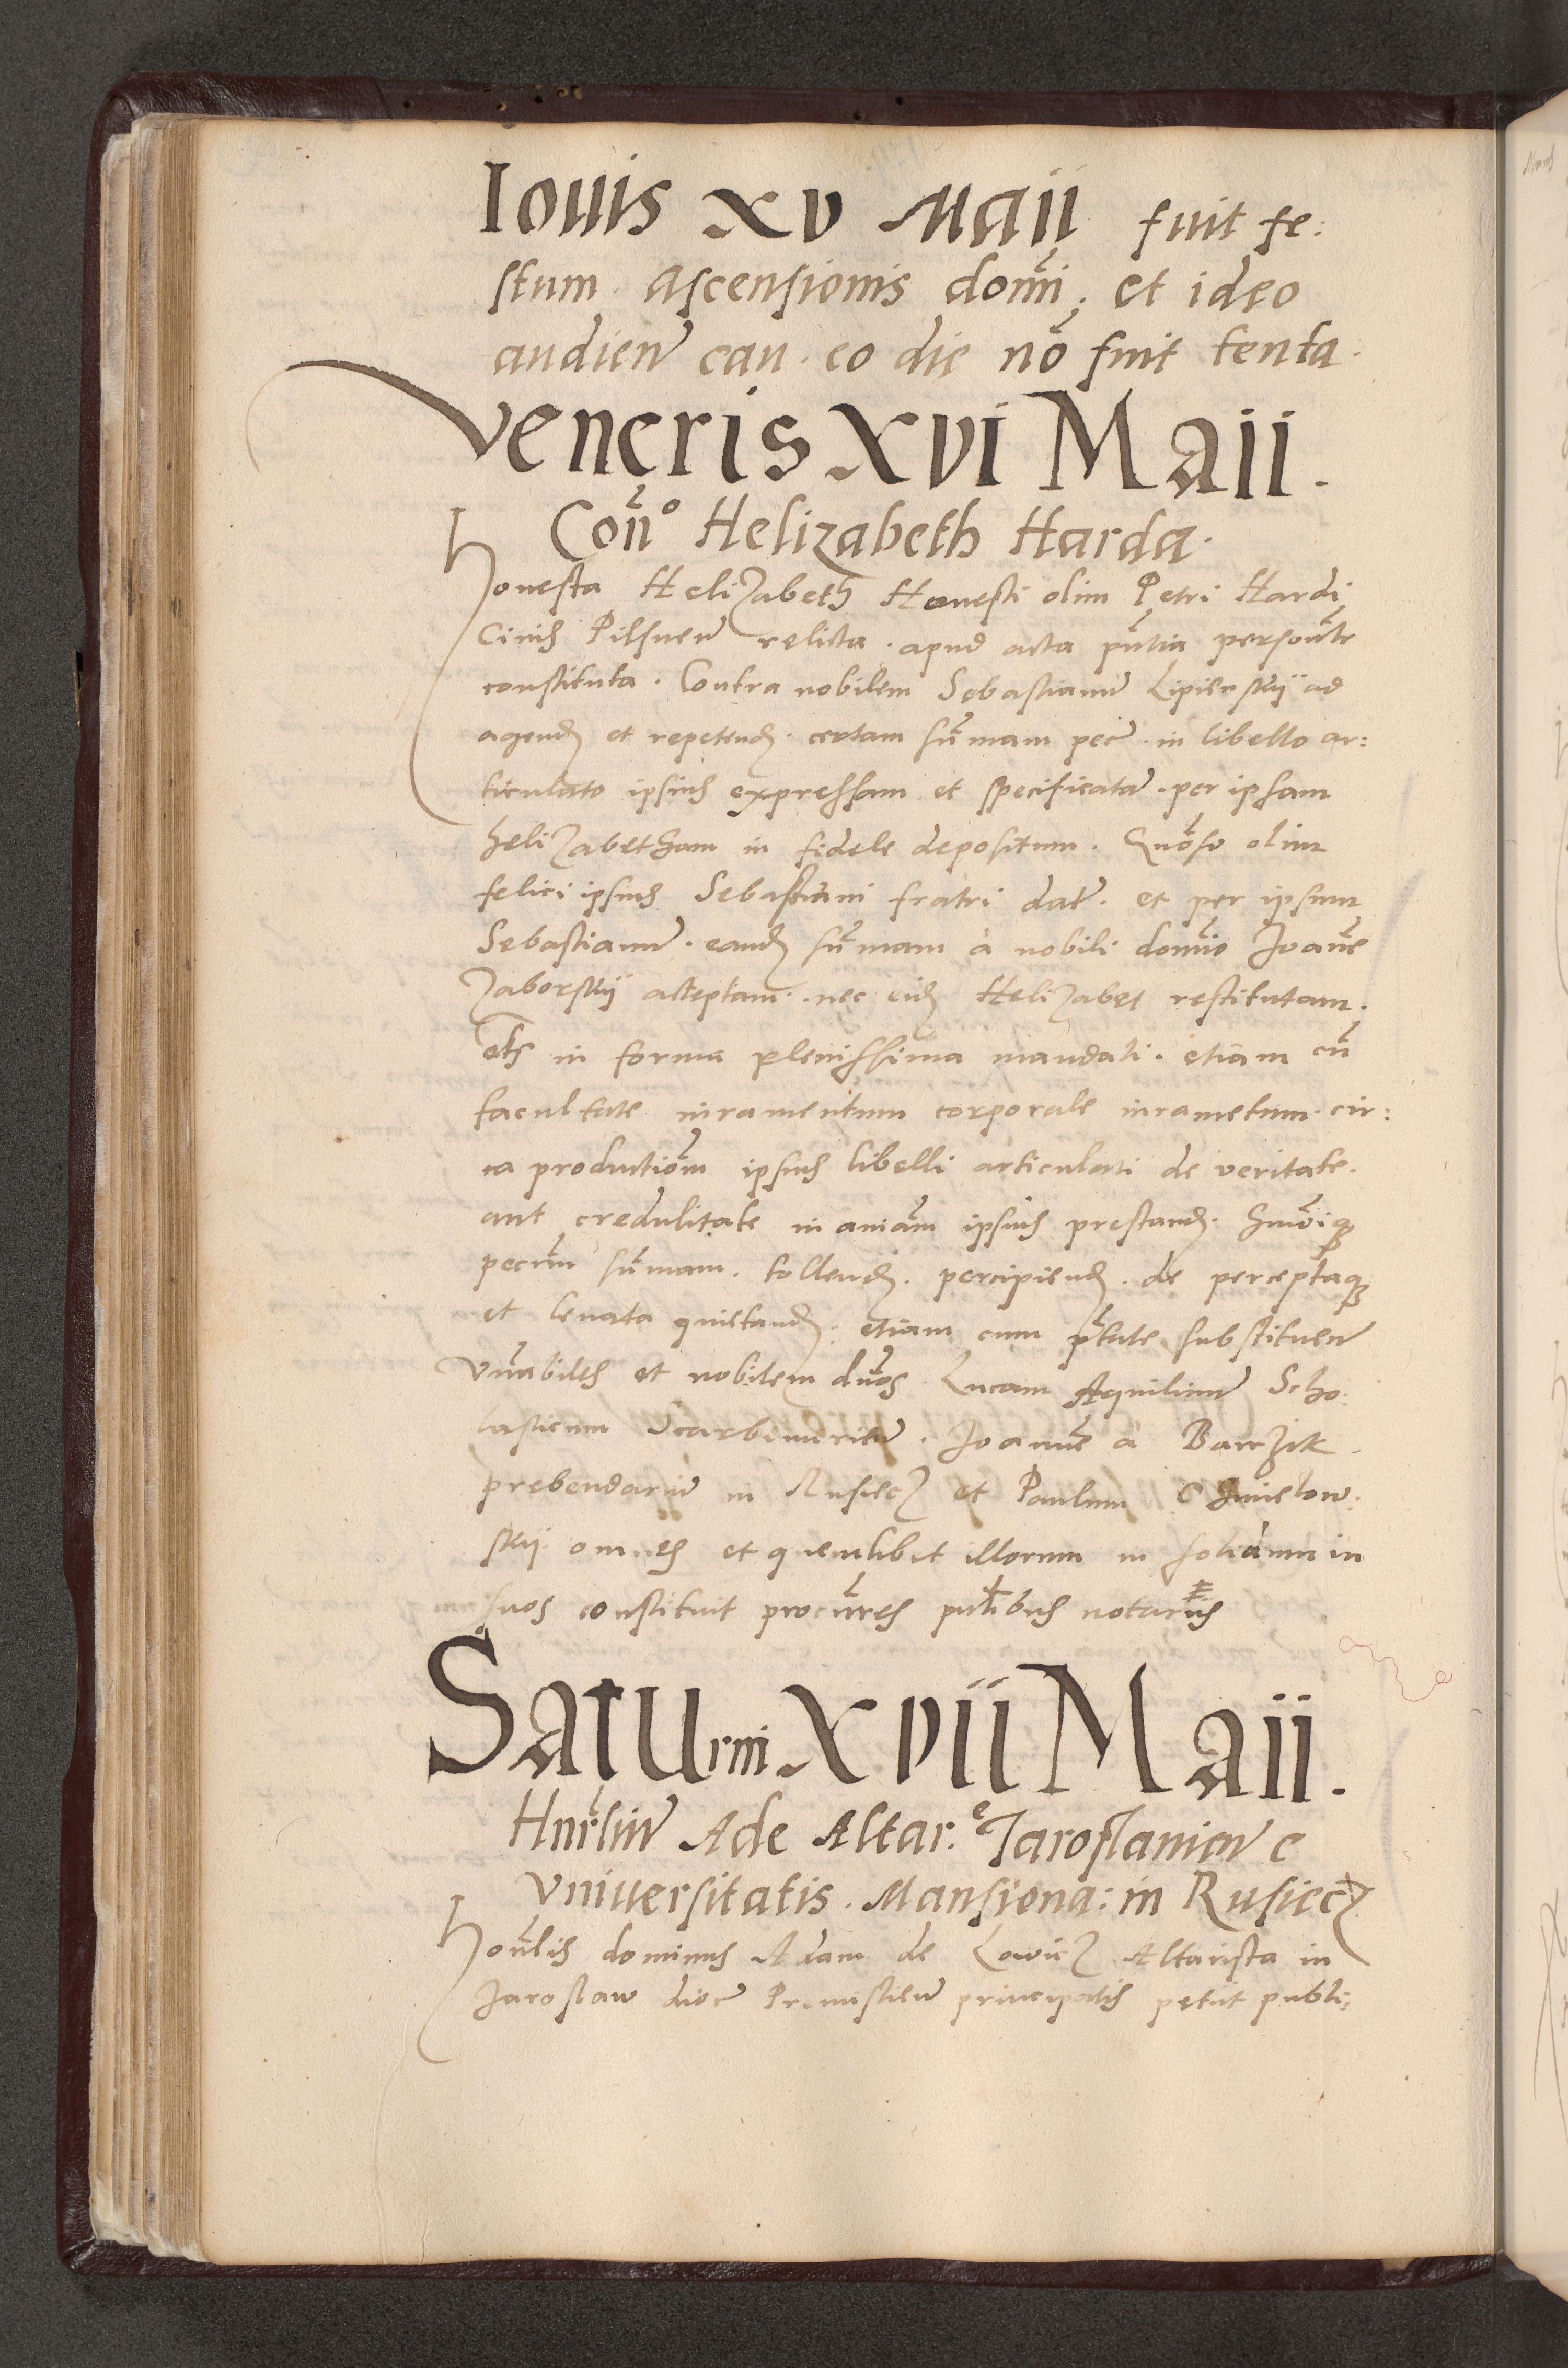 Iouis xv Maii fuit fe:
stum Ascensionis domi. et ideo
audien cau. eo die nō fuit tenta.
Veneris XVI Maii.
Con̄º Helizabeth Harda.
Honesta Helizabeth Honesti olim Petri Hardi
Ciuis Pilsnen relicta. apud acta pn̄tia personlr
constituta. Contra nobilem Sebastianum Lipienskij ad
agend et repetend. certam sūmam pec. in libello ar:
ticulato ipsius expressam et specificatā. per ipsam
helizabetham in fidele depositum. olim
felici ipsius Sebastiani fratri dat. et per ipsum
Sebastianum. eand sūmam à nobili domio Joañe
Zaborskij acceptam. nec eid Helizabet restitutam.
etc in forma plenissima mandati. etiam cū
facultate iuramentum corporale iurametum. cir:
ca productiōm ipsius libelli articulati de veritate.
aut credulitate in aniam ipsius prestand.
pecun sūmam. tollend. percipiend. de perceptaq
et leuata quietand. etiam cum ptate substituen
Vnabiles et nobilem dnos Lucam Aquilinum Scho:
lasticum Scarbimirien. Joannē à Barzik
prebendariū in Rusiecz et Paulum Chmielow:
skij omnes et quemlibet illorum in solidum in
suos constituit procures publibus notariis
Saturni XVII Maii.
Ade Altar. Jaroslauien e
Vniuersitatis. Mansiona: in Rusiecz
Honlis dominus Adam de Lowicz Altarista in
Jaroslaw dioc Premislien principalis petiit publi: